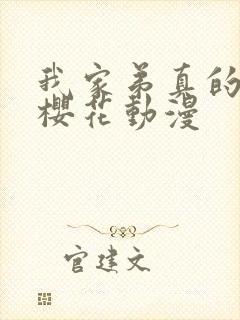 我家弟真的
櫻花動漫
官建文